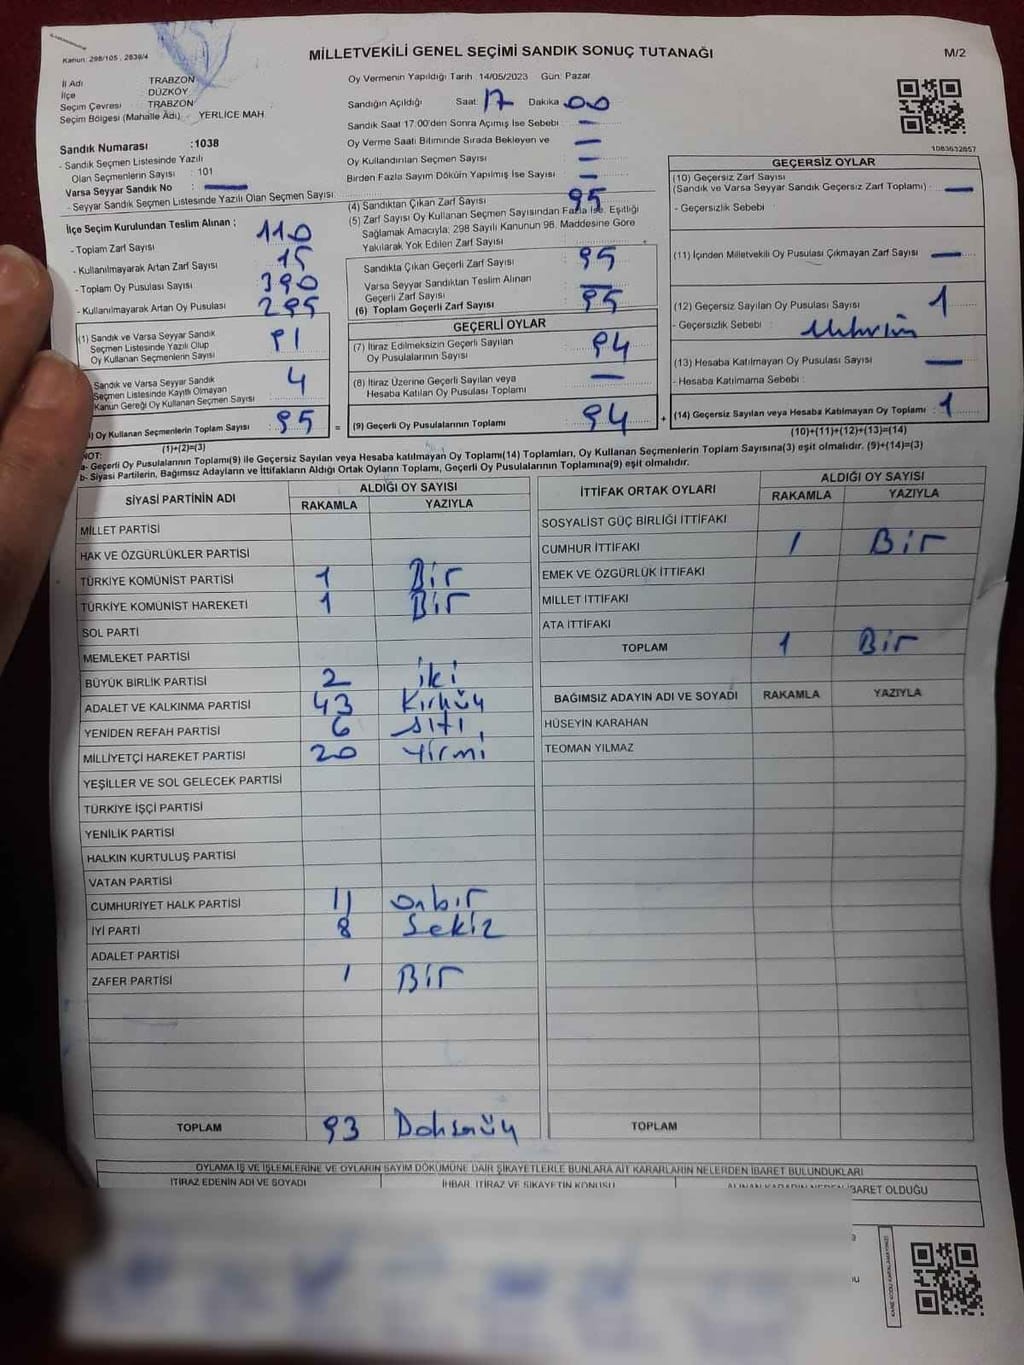 Kanun: 298/105, 2839/4
MİLLETVEKİLİ GENEL SEÇİMİ SANDIK SONUÇ TUTANAĞI
M/2
İl Adı TRABZON
İlçe DÜZKÖY
Seçim Çevresi TRABZON
Seçim Bölgesi (Mahalle Adı) : YERLİCE MAH.
Sandık Numarası : 1038
- Sandık Seçmen Listesinde Yazılı
Olan Seçmenlerin Sayısı : 101
Varsa Seyyar Sandık No : —
- Seyyar Sandık Seçmen Listesinde Yazılı Olan Seçmen Sayısı
Oy Vermenin Yapıldığı Tarih: 14/05/2023 Gün: Pazar
Sandığın Açıldığı Saat 17 Dakika 00
Sandık Saat 17:00'den Sonra Açımış İse Sebebi : —
Oy Verme Saati Bitiminde Sırada Bekleyen ve
Oy Kullandırılan Seçmen Sayısı : —
Birden Fazla Sayım Döküm Yapılmış İse Sayısı : —
1083632857
İlçe Seçim Kurulundan Teslim Alınan ;
- Toplam Zarf Sayısı : 110
- Kullanılmayarak Artan Zarf Sayısı : 15
- Toplam Oy Pusulası Sayısı : 390
- Kullanılmayarak Artan Oy Pusulası : 295
(1) Sandık ve Varsa Seyyar Sandık
Seçmen Listesinde Yazılı Olup
Oy Kullanan Seçmenlerin Sayısı : 91
Sandık ve Varsa Seyyar Sandık
Seçmen Listesinde Kayıtlı Olmayan
Kanun Gereği Oy Kullanan Seçmen Sayısı : 4
) Oy Kullanan Seçmenlerin Toplam Sayısı : 95
(1)+(2)=(3)
(4) Sandıktan Çıkan Zarf Sayısı : 95
(5) Zarf Sayısı Oy Kullanan Seçmen Sayısından Fazla İse, Eşitliği
Sağlamak Amacıyla, 298 Sayılı Kanunun 98. Maddesine Göre
Yakılarak Yok Edilen Zarf Sayısı
Sandıkta Çıkan Geçerli Zarf Sayısı : 95
Varsa Seyyar Sandıktan Teslim Alınan
Geçerli Zarf Sayısı : —
(6) Toplam Geçerli Zarf Sayısı : 95
GEÇERLİ OYLAR
(7) İtiraz Edilmeksizin Geçerli Sayılan
Oy Pusulalarının Sayısı : 94
(8) İtiraz Üzerine Geçerli Sayılan veya
Hesaba Katılan Oy Pusulası Toplamı : —
= (9) Geçerli Oy Pusulalarının Toplamı : 94 +
GEÇERSİZ OYLAR
(10) Geçersiz Zarf Sayısı
(Sandık ve Varsa Seyyar Sandık Geçersiz Zarf Toplamı) : —
- Geçersizlik Sebebi :
(11) İçinden Milletvekili Oy Pusulası Çıkmayan Zarf Sayısı : —
(12) Geçersiz Sayılan Oy Pusulası Sayısı : 1
- Geçersizlik Sebebi :
(13) Hesaba Katılmayan Oy Pusulası Sayısı : —
- Hesaba Katılmama Sebebi :
(14) Geçersiz Sayılan veya Hesaba Katılmayan Oy Toplamı : 1
(10)+(11)+(12)+(13)=(14)
NOT:
a- Geçerli Oy Pusulalarının Toplamı(9) ile Geçersiz Sayılan veya Hesaba katılmayan Oy Toplamı(14) Toplamları, Oy Kullanan Seçmenlerin Toplam Sayısına(3) eşit olmalıdır. (9)+(14)=(3)
b- Siyasi Partilerin, Bağımsız Adayların ve İttifakların Aldığı Ortak Oyların Toplamı, Geçerli Oy Pusulalarının Toplamına(9) eşit olmalıdır.
SİYASİ PARTİNİN ADI ALDIĞI OY SAYISI
RAKAMLA YAZIYLA
MİLLET PARTİSİ
HAK VE ÖZGÜRLÜKLER PARTİSİ
TÜRKİYE KOMÜNİST PARTİSİ 1 Bir
TÜRKİYE KOMÜNİST HAREKETİ 1 Bir
SOL PARTİ
MEMLEKET PARTİSİ
BÜYÜK BİRLİK PARTİSİ 2 iki
ADALET VE KALKINMA PARTİSİ 43 Kırküç
YENİDEN REFAH PARTİSİ 6 altı
MİLLİYETÇİ HAREKET PARTİSİ 20 yirmi
YEŞİLLER VE SOL GELECEK PARTİSİ
TÜRKİYE İŞÇİ PARTİSİ
YENİLİK PARTİSİ
HALKIN KURTULUŞ PARTİSİ
VATAN PARTİSİ
CUMHURİYET HALK PARTİSİ 11 onbir
İYİ PARTİ 8 Sekiz
ADALET PARTİSİ
ZAFER PARTİSİ 1 Bir
TOPLAM 93 Doksanüç
İTTİFAK ORTAK OYLARI ALDIĞI OY SAYISI
RAKAMLA YAZIYLA
SOSYALİST GÜÇ BİRLİĞİ İTTİFAKI
CUMHUR İTTİFAKI 1 Bir
EMEK VE ÖZGÜRLÜK İTTİFAKI
MİLLET İTTİFAKI
ATA İTTİFAKI
TOPLAM 1 Bir
BAĞIMSIZ ADAYIN ADI VE SOYADI RAKAMLA YAZIYLA
HÜSEYİN KARAHAN
TEOMAN YILMAZ
TOPLAM
OYLAMA İŞ VE İŞLEMLERİNE VE OYLARIN SAYIM DÖKÜMÜNE DAİR ŞİKAYETLERLE BUNLARA AİT KARARLARIN NELERDEN İBARET BULUNDUKLARI
İTİRAZ EDENİN ADI VE SOYADI İHBAR, İTİRAZ VE ŞİKAYETİN KONUSU ALINAN KARARIN NEDEN İBARET OLDUĞU